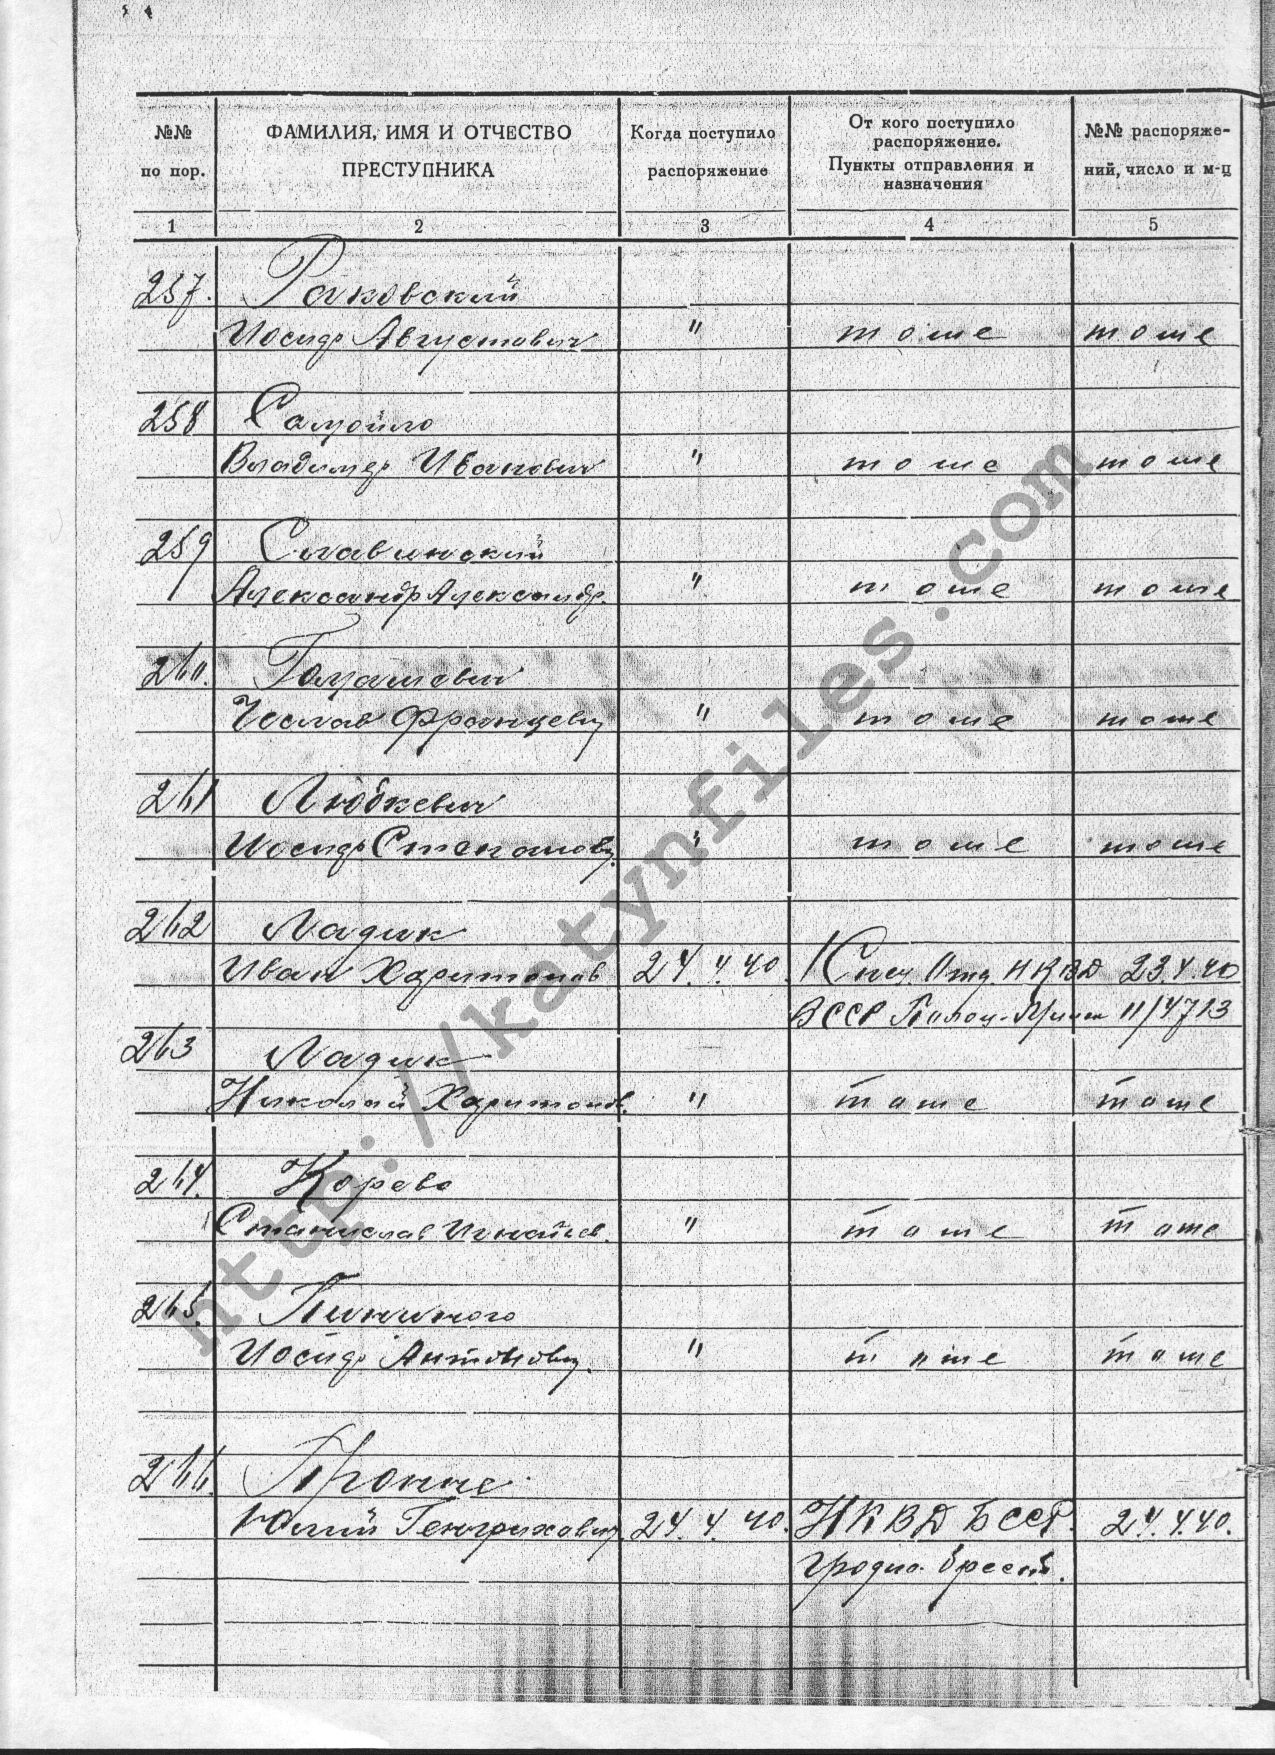 №№ по пор.
ФАМИЛИЯ, ИМЯ И ОТЧЕСТВО ПРЕСТУПНИКА
Когда поступило распоряжение
От кого поступило распоряжение. Пункты отправления и назначения
№№ распоряжений, число и м-ц
1 2 3 4 5
257. Раковский
Иосиф Августович " тоже тоже
258 Самойло
Владимир Иванович " тоже тоже
259 Славинский
Александр Александр. " тоже тоже
260. Томашевич
Чеслав Францевич " тоже тоже
261 Любкевич
Иосиф Степанович " тоже тоже
262 Ладик
Иван Харитонов 24.4.40. 1 Спец. Отд. НКВД 23.4.40
БССР Полоц.-Минск 11/4713
263 Ладик
Николай Харитонов. " тоже тоже
264. Корево
Станислав Игнатьев. " тоже тоже
265.
Иосиф Антонович. " тоже тоже
266. Пронне
Юлий Генрихович 24.4.40. НКВД БССР. 24.4.40.
Гродно-Брест.
http://katynfiles.com